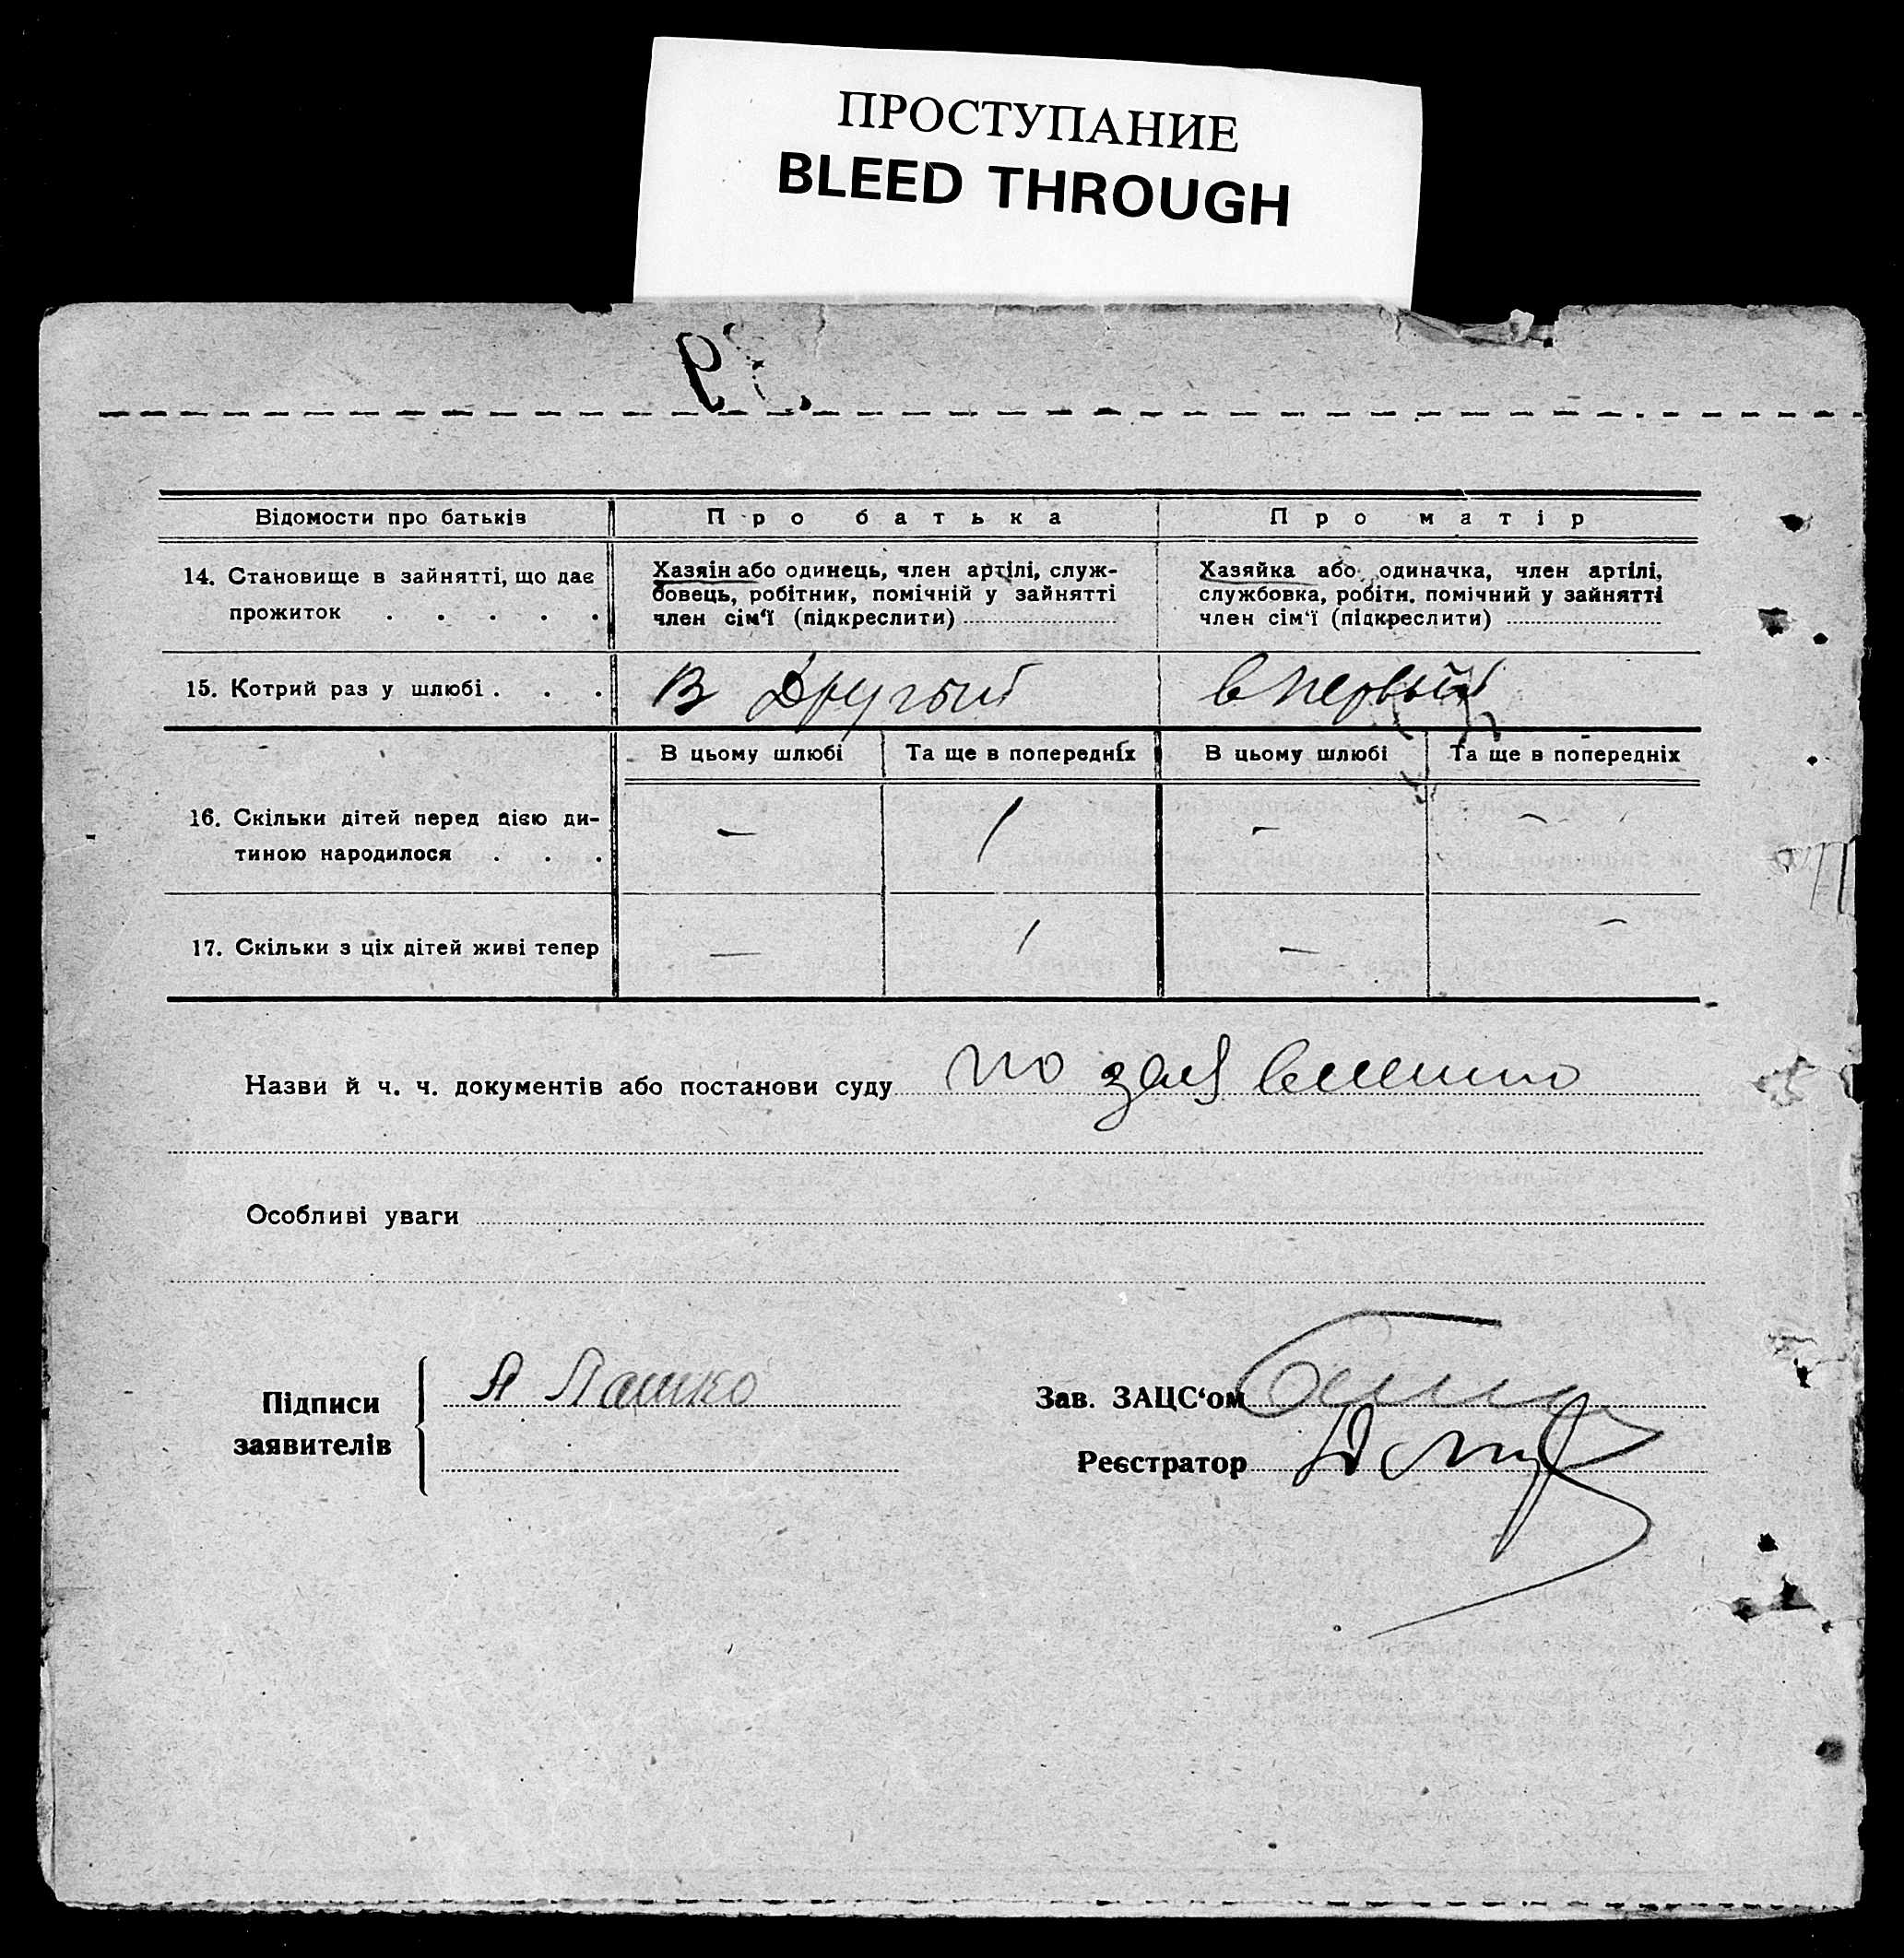 ПРОСТУПАНИЕ
BLEED THROUGH
Відомости про батьків
Про батька
Про матір
14. Становище в зайнятті, що дає
прожиток . . . . .
Хазяін або одинець, член артілі, служ-
бовець, робітник, помічній у зайнятті
член сім'ї (підкреслити)
Хазяйка або одиначка, член артілі,
службовка, робітн. помічний у зайнятті
член сім'ї (підкреслити)
15. Котрий раз у шлюбі . . .
В другый
в первый
В цьому шлюбі
Та ще в попередніх
В цьому шлюбі
Та ще в попередніх
16. Скільки дітей перед цією ди-
тиною народилося . . .
— 1 — —
17. Скільки з ціх дітей живі тепер
— 1 — —
Назви й ч. ч. документів або постанови суду по заявлению
Особливі уваги
Підписи
заявителів
Я Пашко
Зав. ЗАЦС'ом
Реєстратор